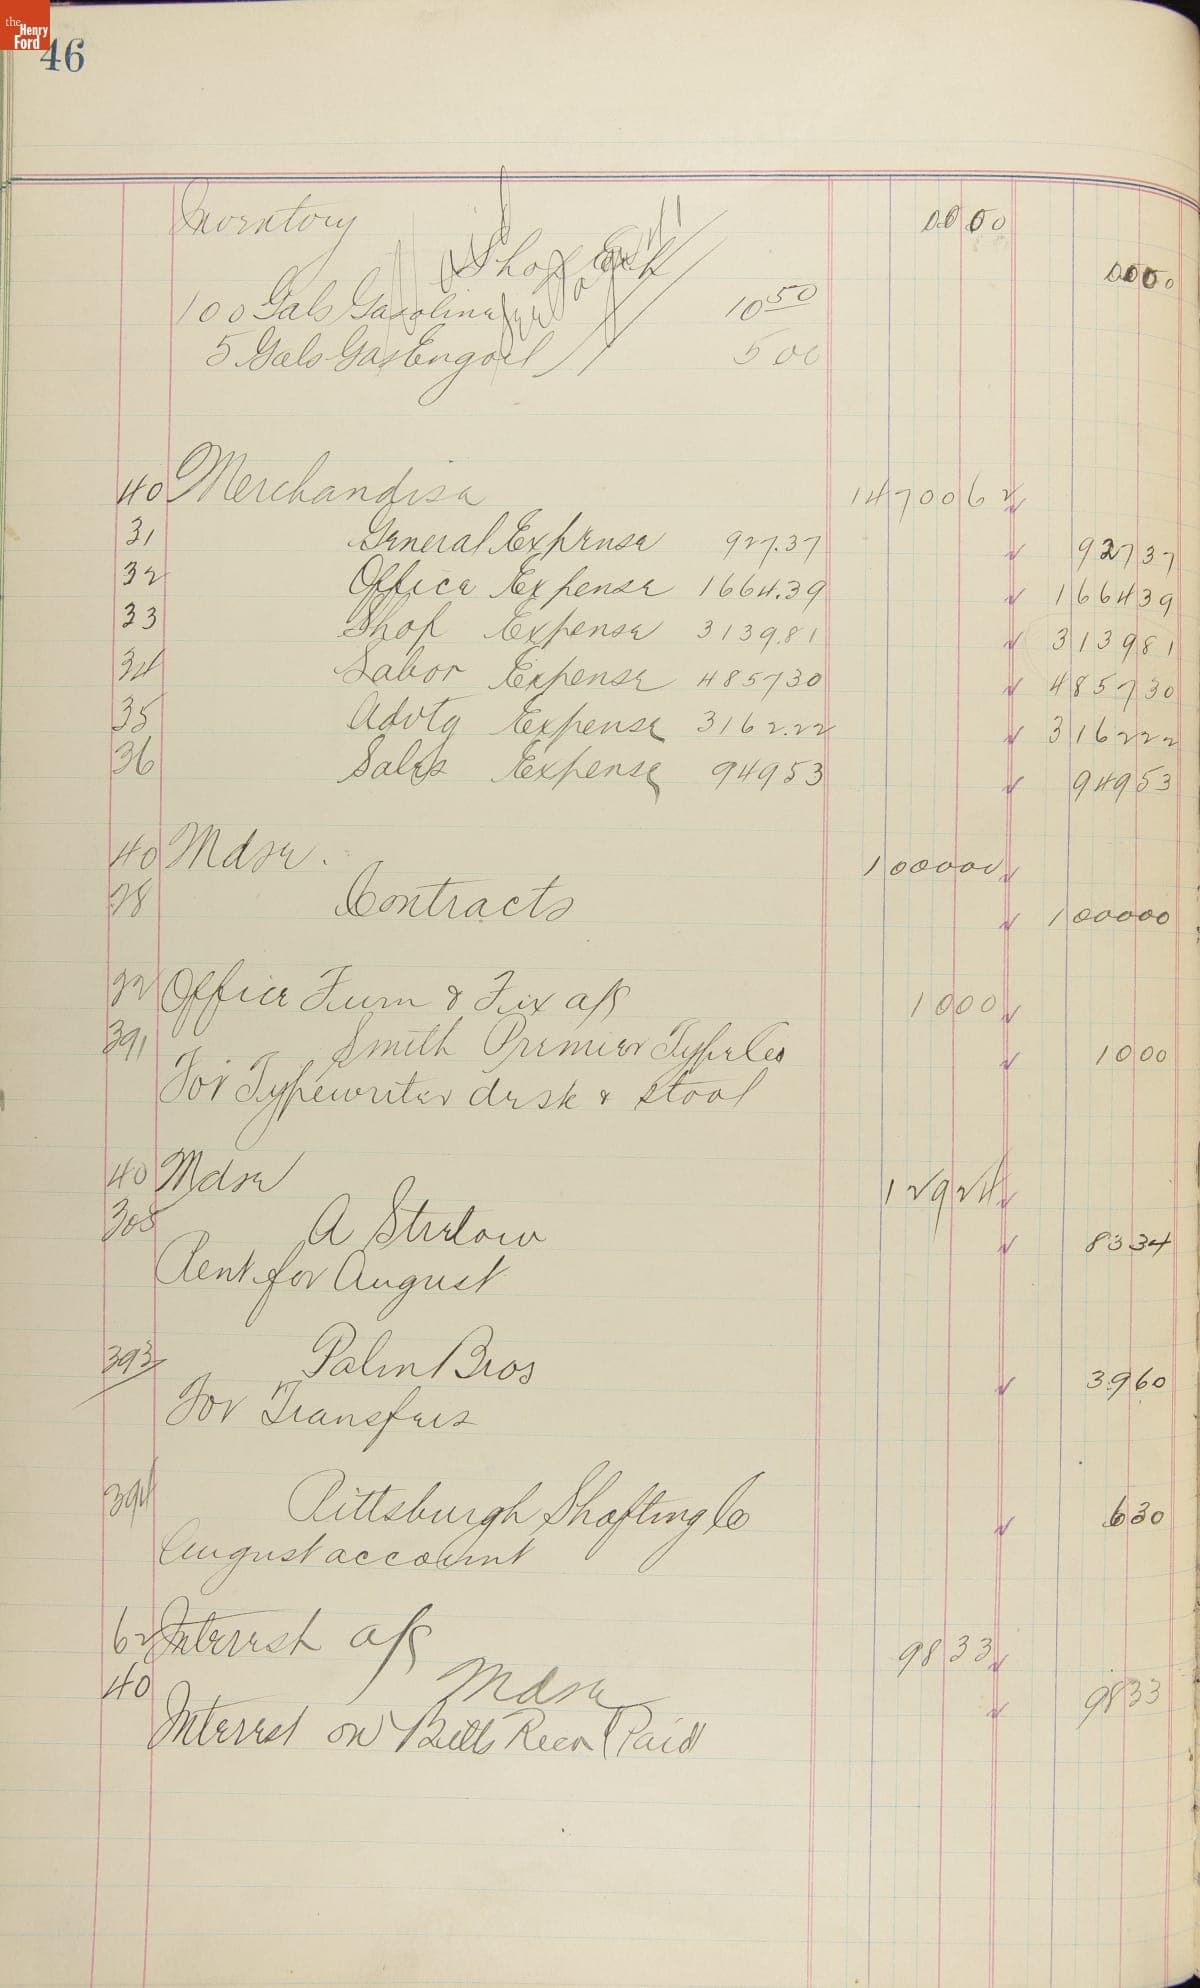 the Henry Ford
46
Inventory 0000
Shop 0000
100 Gals Gasoline 10 50
5 Gals Gas Eng oil 5 00
40 Merchandise 14700 62
31 General Expense 927.37 927 37
32 Office Expense 1664.39 1664 39
33 Shop Expense 3139.81 3139 81
34 Labor Expense 4857 30 4857 30
35 Advtg Expense 3162.22 3162 22
36 Sales Expense 949 53 949 53
40 Mdse. 1000 00
28 Contracts 1000 00
22 Office Furn & Fix a/c 10 00
391 Smith Premier Type Co 10 00
For Typewriter desk & stool
40 Mdse 129 24
305 A Strelow 83 34
Rent for August
393 Palm Bros 39 60
For Transfers
394 Pittsburgh Shafting Co 6 30
August account
62 Interest a/c 98 33
40 Mdse 98 33
Interest on Bills Recv Paid